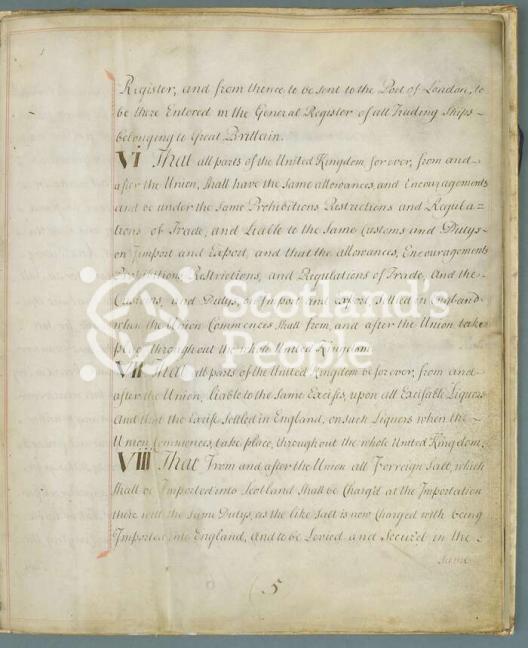 Register, and from thence to be sent to the Port of London, to
be there Entered in the General Register of all Trading Ships
belonging to Great Brittain.
VI That all parts of the United Kingdom for ever, from and
after the Union, shall have the same allowances, and Encouragements
and be under the same Prohibitions Restrictions and Regula=
tions of Trade, and Liable to the same Customs and Dutys
on Import and Export, and that the allowances, Encouragements
Prohibitions, Restrictions, and Regulations of Trade, And the
Customs, and Dutys, on Import and export settled in England
when the Union Commences shall from, and after the Union take
place throughout the whole United Kingdom
VII That all parts of the United Kingdom be for ever, from and
after the Union, liable to the same Excises, upon all Exciseable Liquors
And that the Excise settled in England, on such Liquors when the
Union Commences, take place, throughout the whole United Kingdom.
VIII That From and after the Union all Forreign Salt, which
shall be Imported into Scotland shall be Charg'd at the Importation
there with the same Dutys, as the like salt is now Charged with being
Imported into England, And to be Levied and Secured in the
same
5
Scotland's
People